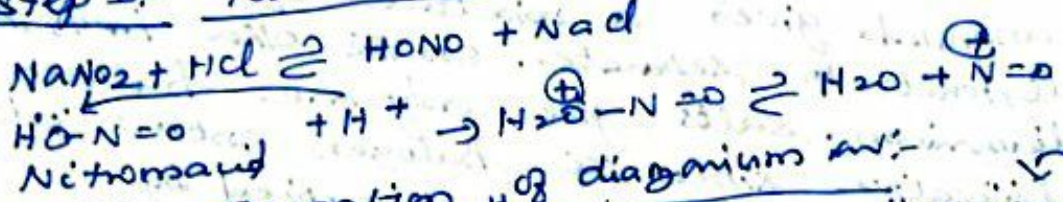 NaNO2 + HCl ⇌ HONO + NaCl
HÖ-N=O + H+ → H2O⊕-N=O ⇌ H2O + N⊕=O
Nitrousacid
of diazonium ion:-